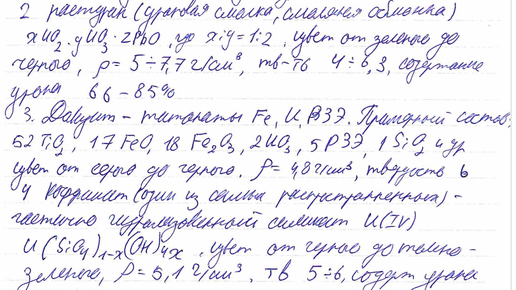 2 настуран (урановая смолка, смоляная обманка)
xUO₂·yUO₃·zPbO, где x:y=1:2, цвет от зеленого до
черного, ρ=5÷7,7 г/см³, тв-ть 4÷6,3, содержание
урана 66-85%
3. Давидит - титанаты Fe, U, РЗЭ. Примерный состав:
52TiO₂, 17FeO, 18Fe₂O₃, 2UO₃, 5РЗЭ, 1SiO₂ и др
цвет от серого до черного. ρ=4,8г/см³, твердость 6
4 коффинит (один из самых распространенных) -
частично гидролизованный силикат U(IV)
U(SiO₄)₁₋ₓ(OH)₄ₓ, цвет от черно до темно-
зеленого, ρ=5,1 г/см³, тв 5÷6, содерж урана